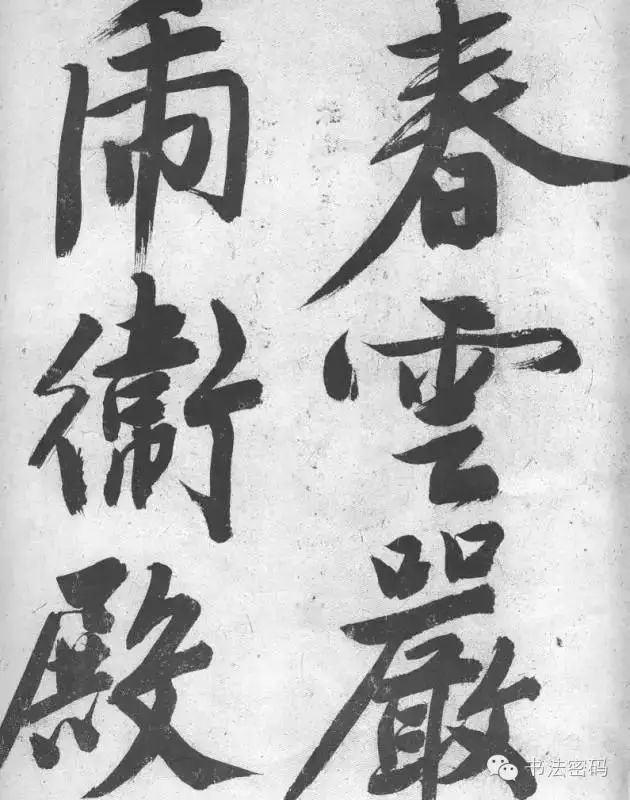 春雲嚴
兩衛殿
书法密码